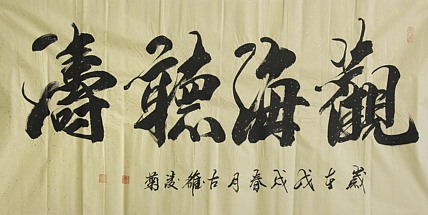 觀海聽濤
歲在戊戌春月古凌菊